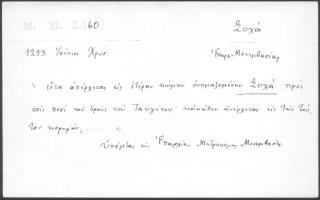 M. M. 5.160 Σοχά
1293 Ἰούνιος Χρυσ. Ἐπαρχ. Μονεμβασίας
" Εἶτα ἀπέρχεται εἰς ἑτέραν κώμην ὀνομαζομένην Σοχά πρὸς
τοῖς ποσὶ τοῦ ὄρους τοῦ Ταϋγέτου κἀκεῖθεν ἀνέρχεται εἰς τὴν τού-
του κορυφήν, ...... "
ὑπόκειται εἰς Ἐπαρχίαν Μητροπόλεως Μονεμβασίας